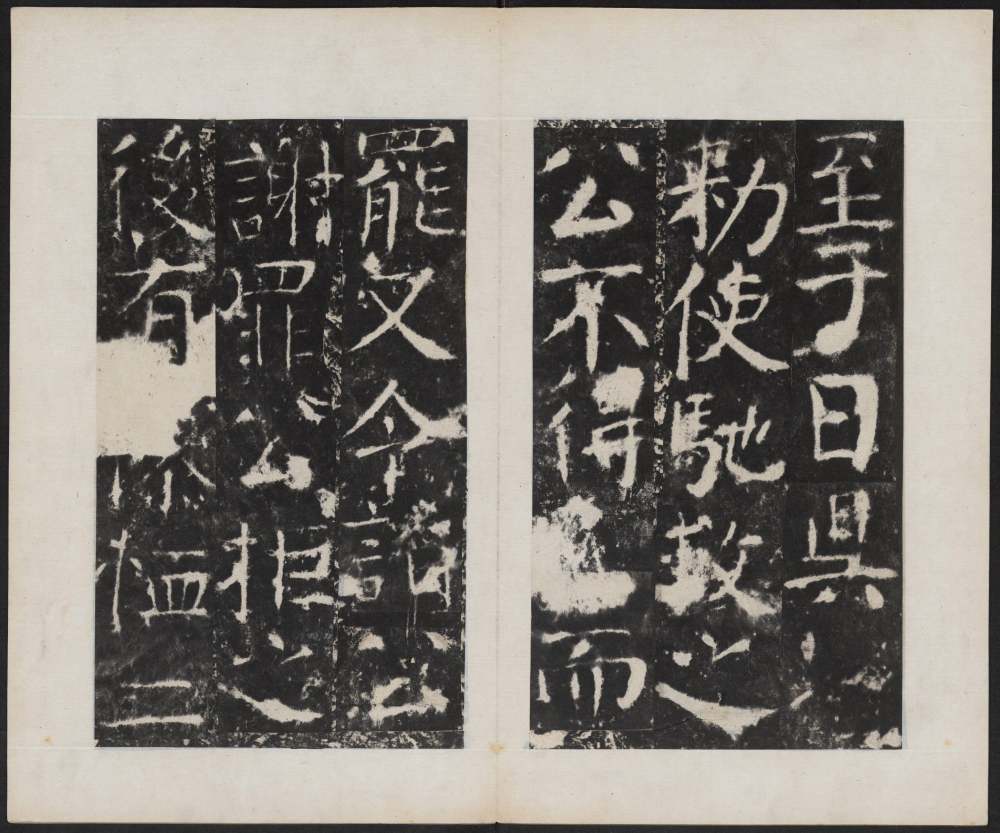 至于日昃
勑使馳救之
公不併而
罷又令詣公
謝罪公拒之
後有爁二